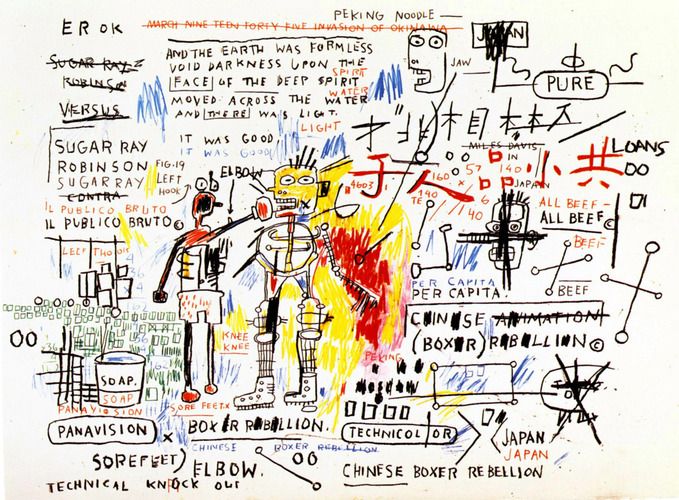 PEKING NOODLE
EROK
MARCH NINETEEN FORTY FIVE INVASION OF OKINAWA
AND THE EARTH WAS FORMLESS
VOID DARKNESS UPON THE
SPIRIT
FACE OF THE DEEP SPIRIT
WATER
MOVED ACROSS THE WATER
AND THERE WAS LIGHT.
LIGHT
IT WAS GOOD.
IT WAS GOOD
SUGAR RAY
ROBINSON
VERSUS
SUGAR RAY
ROBINSON
SUGAR RAY
CONTRA
IL PUBLICO BRUTO
IL PUBLICO BRUTO©
FIG.19
LEFT
HOOK
ELBOW
JAW
JAPAN
PURE
MILES DAVIS
IN
JAPAN
LOANS
于人品小共
4603
160
57
140
140
TE
6
40
ALL BEEF-
ALL BEEF-©
BEEF
BEEF
PER CAPITA
PER CAPITA.
CHINESE ANIMATION
(BOXER) REBELLION©
LEFT
KNEE
KNEE
PEKING
SOAP.
SOAP
PANAVISION
SORE FEET X
PANAVISION
X
BOXER REBELLION.
TECHNICOLOR
CHINESE BOXER REBELLION
JAPAN
JAPAN
SOREFEET)
ELBOW.
CHINESE BOXER REBELLION
TECHNICAL KNOCK OUT